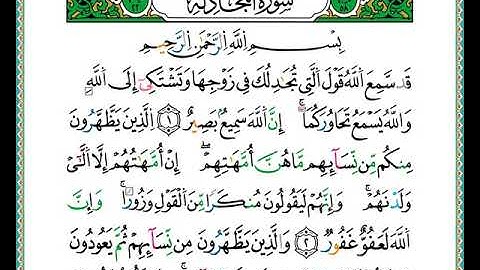 سورة المجادلة
بِسْمِ ٱللَّهِ ٱلرَّحْمَٰنِ ٱلرَّحِيمِ
قَدْ سَمِعَ ٱللَّهُ قَوْلَ ٱلَّتِى تُجَٰدِلُكَ فِى زَوْجِهَا وَتَشْتَكِىٓ إِلَى ٱللَّهِ
وَٱللَّهُ يَسْمَعُ تَحَاوُرَكُمَآ ۚ إِنَّ ٱللَّهَ سَمِيعٌۢ بَصِيرٌ ١ ٱلَّذِينَ يُظَٰهِرُونَ
مِنكُم مِّن نِّسَآئِهِم مَّا هُنَّ أُمَّهَٰتِهِمْ ۖ إِنْ أُمَّهَٰتُهُمْ إِلَّا ٱلَّٰٓـِٔى
وَلَدْنَهُمْ ۚ وَإِنَّهُمْ لَيَقُولُونَ مُنكَرًا مِّنَ ٱلْقَوْلِ وَزُورًا ۚ وَإِنَّ
ٱللَّهَ لَعَفُوٌّ غَفُورٌ ٢ وَٱلَّذِينَ يُظَٰهِرُونَ مِن نِّسَآئِهِمْ ثُمَّ يَعُودُونَ